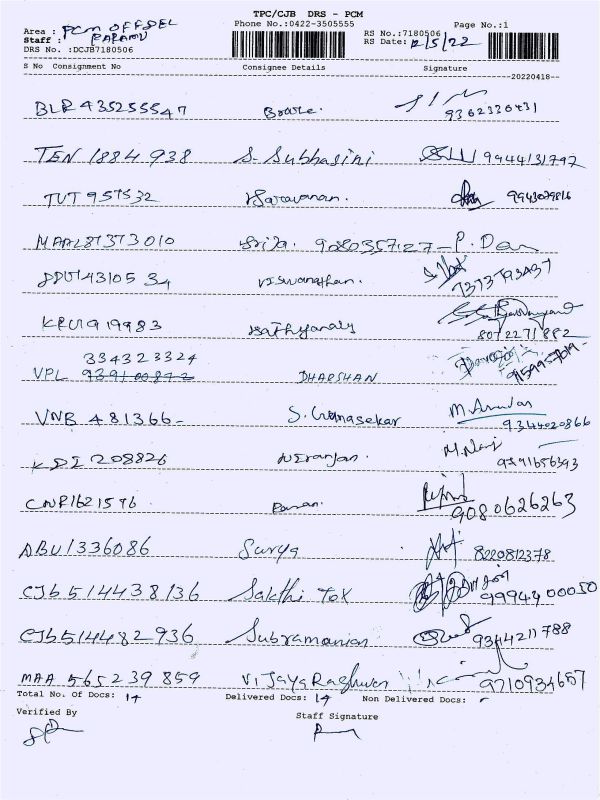 TPC/CJB DRS - PCM
Area : PCM OFFDEL Phone No.:0422-3505555 Page No.:1
Staff : PARAMU RS No.:7180506
DRS No. :DCJB7180506 RS Date: 12/5/22
S No Consignment No Consignee Details Signature
--20220418--
BLR 435255547 9362330431
TEN 1884 938 S. Subhasini 9944131792
TUT 957532 Saravanan. 9943029816
MAAL87373010 Srija. 9080357127 - P. Dev
PDU1431053 4 Viswanathan. 7373793437
KRU1919983 Sathyanaly 8072271882
334323324
VPL 939100872 DHARSHAN
VNB 481366- S. Gunasekar M. Anandan 9344020866
KDI 208826 Niranjan.
CNR1621576 9080626263
ABU1336086 Surya 8220812378
CJb 514438136 Sakthi Tex 9994400050
CJb514482936 Subramanian 9344211788
MAA 565239859 Vijaya Raghvan 9710934657
Total No. Of Docs: 14 Delivered Docs: 14 Non Delivered Docs: -
Verified By Staff Signature